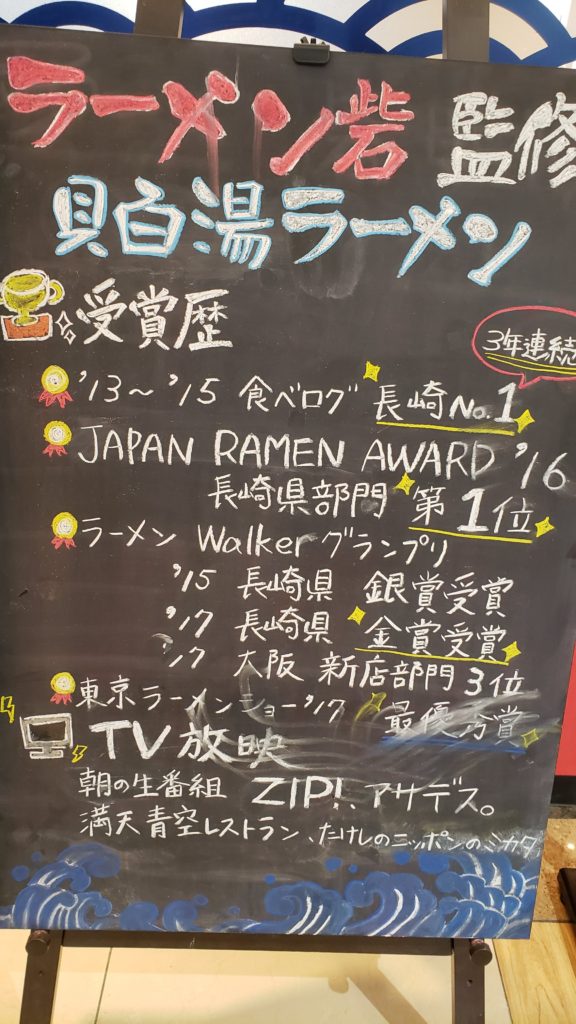 ラーメン砦 監修
貝白湯ラーメン
受賞歴
3年連続
'13～'15 食べログ 長崎No.1
JAPAN RAMEN AWARD '16
長崎県部門 第1位
ラーメン Walkerグランプリ
'15 長崎県 銀賞受賞
'17 長崎県 金賞受賞
'17 大阪 新店部門3位
東京ラーメンショー'17 最優秀賞
TV放映
朝の生番組 ZIP!、アサデス。
満天青空レストラン、たけしのニッポンのミカタ